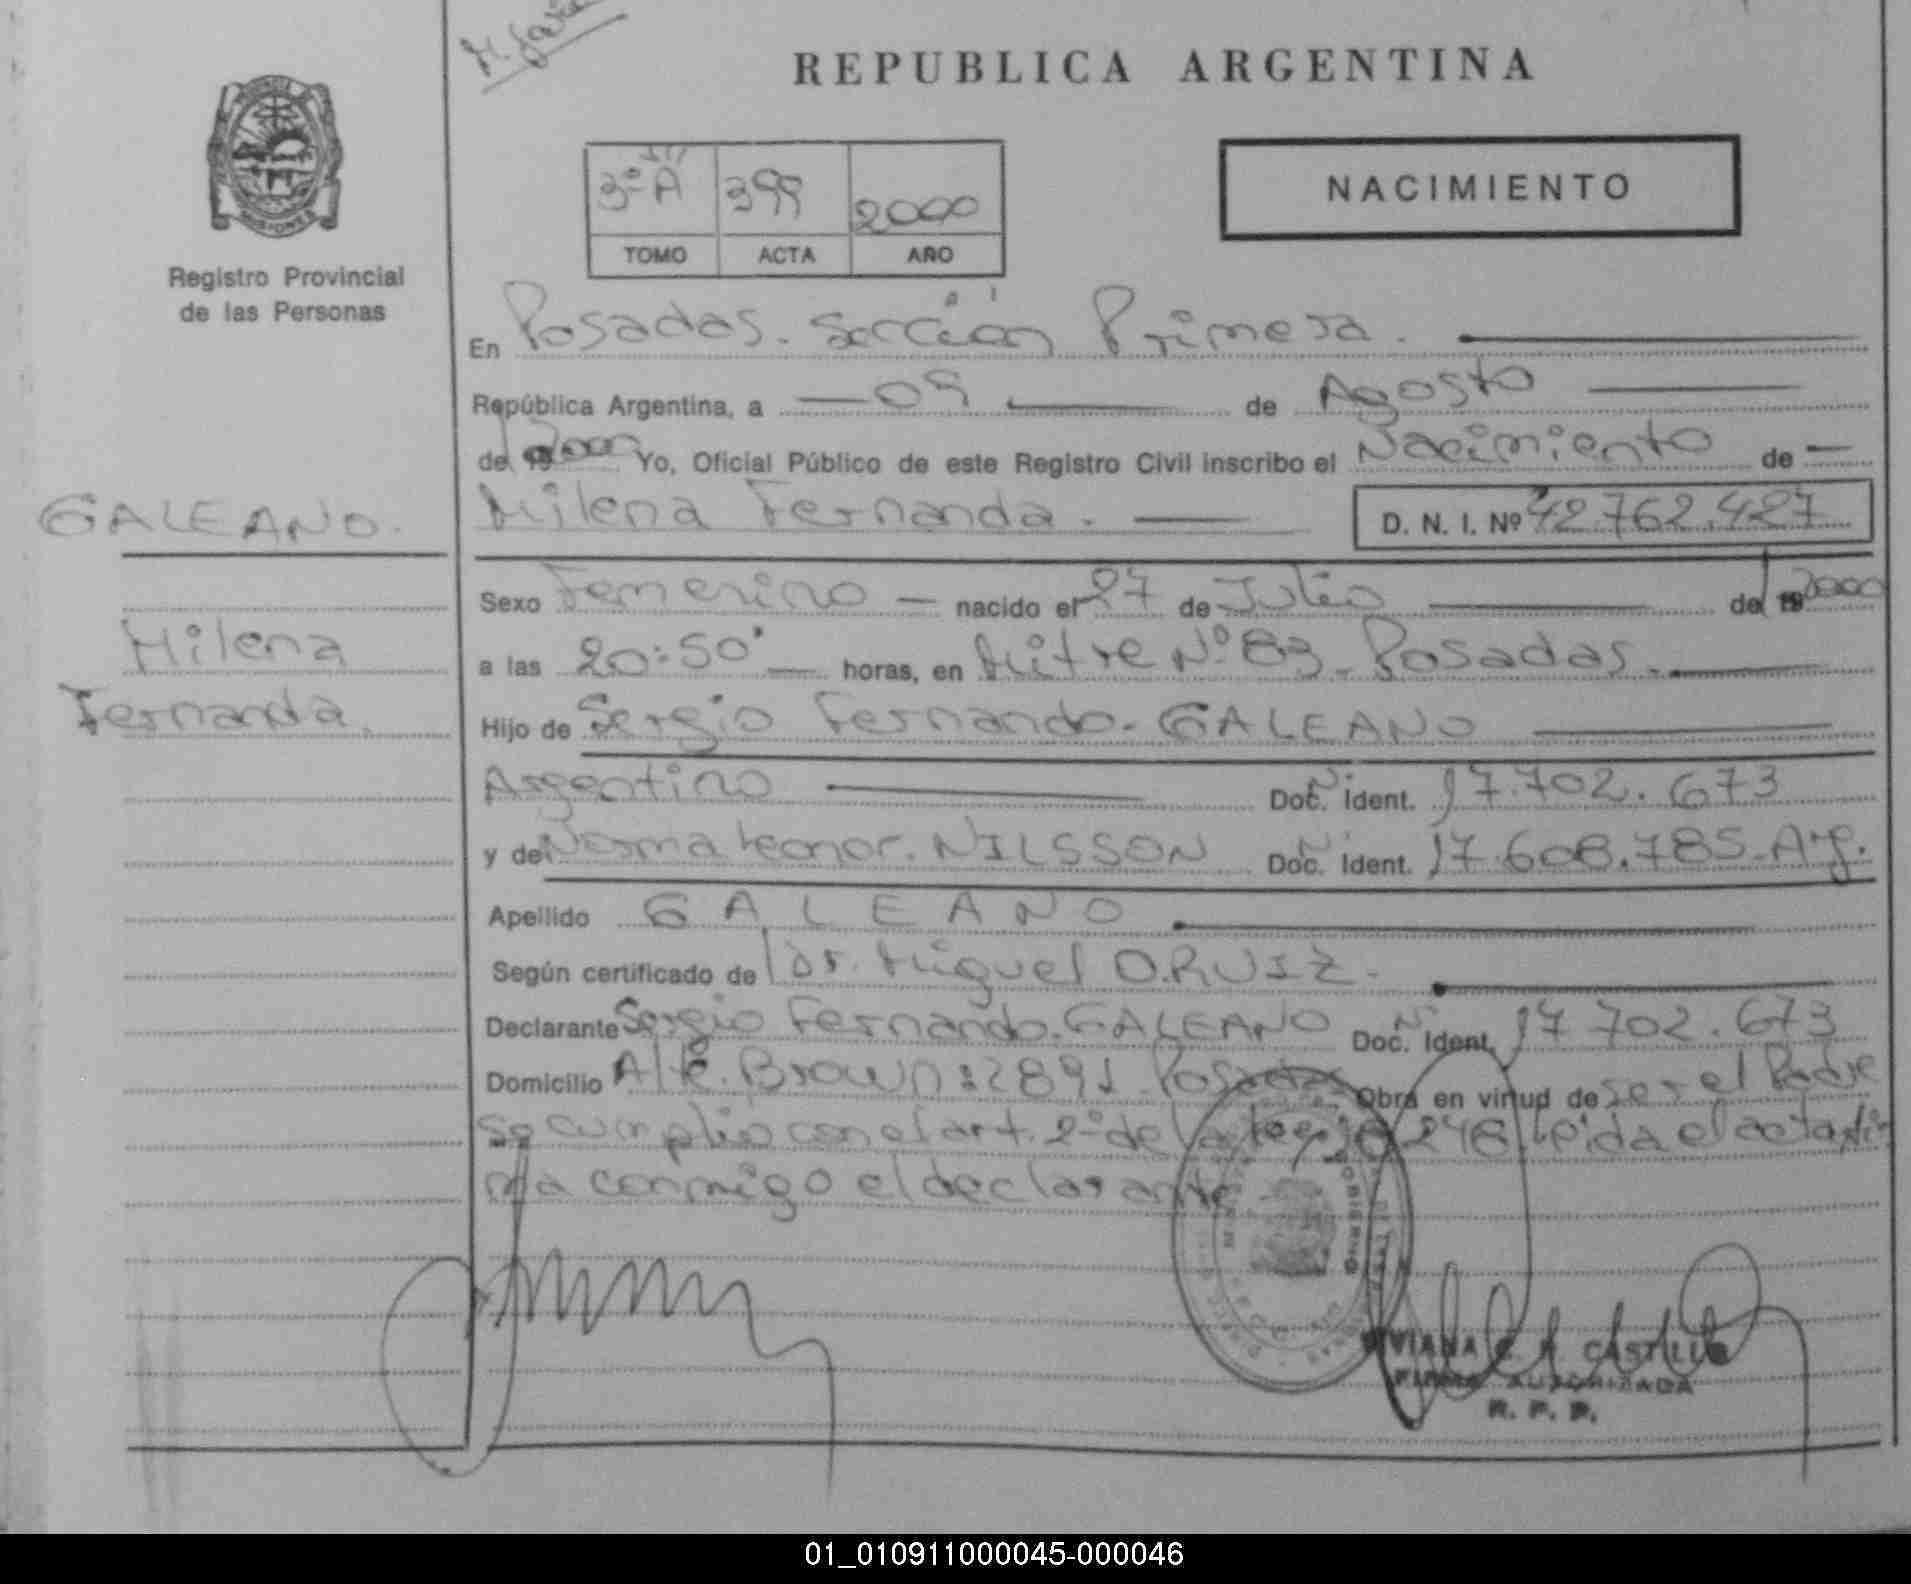 REPUBLICA ARGENTINA
MISIONES
Registro Provincial
de las Personas
3º A 399 2000
TOMO ACTA AÑO
NACIMIENTO
En Posadas. Sección Primera.
República Argentina, a 09 de Agosto
de 2000 Yo, Oficial Público de este Registro Civil inscribo el Nacimiento de
GALEANO.
Milena Fernanda.
D. N. I. Nº 42.762.427
Sexo Femenino nacido el 27 de Julio de 2000
Milena
Fernanda.
a las 20:50' horas, en Mitre Nº 83. Posadas.
Hijo de Sergio Fernando. GALEANO
Argentino Doc. Ident. 17.702.673
y de Norma Leonor. NILSSON Doc. Ident. 17.608.785. Arg.
Apellido GALEANO
Según certificado de Dr. Miguel O. RUIZ.
Declarante Sergio Fernando. GALEANO Doc. Ident. 17 702.673
Domicilio Alte. Brown: 2891 Posadas Obra en virtud de ser el Padre
se cumplio con el art. 2º de la ley 18.248. Leida el acta fir
ma conmigo el declarante
GOBIERNO
VIVIANA C. R. CASTILLO
FIRMA AUTORIZADA
R. P. P.
01_010911000045-000046